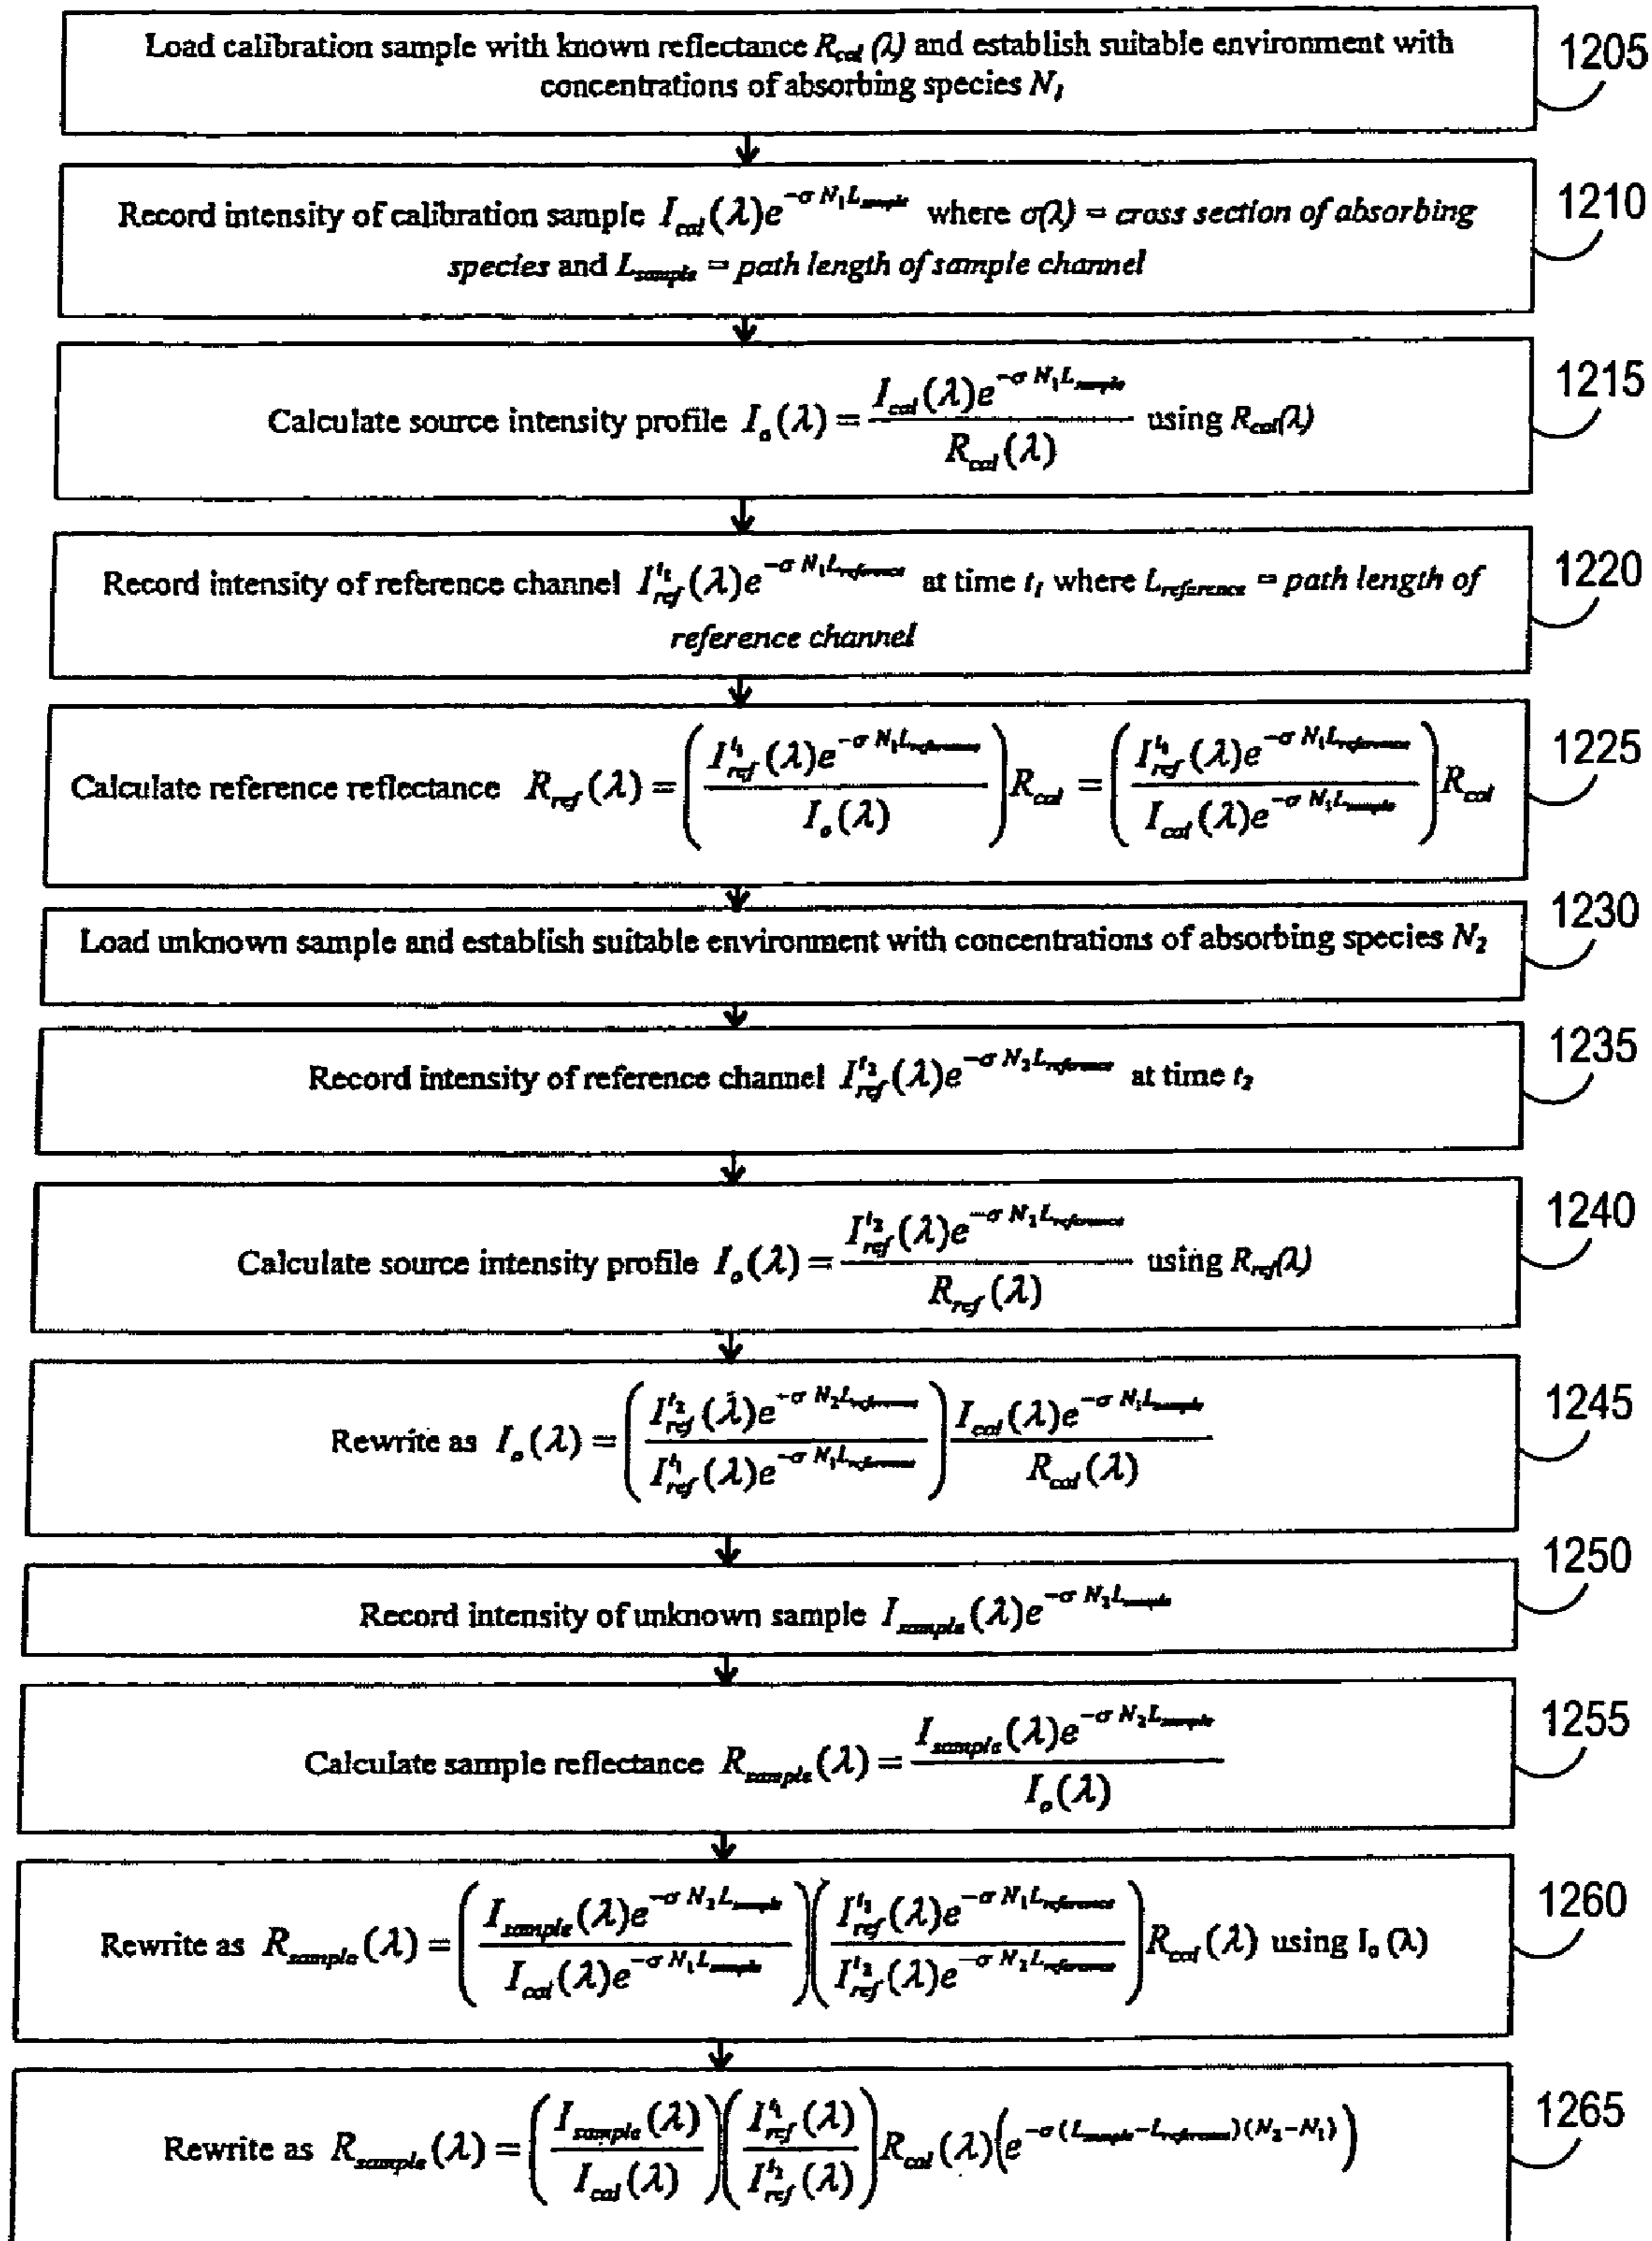 Load calibration sample with known reflectance R_cal (λ) and establish suitable environment with
concentrations of absorbing species N_1
1205
Record intensity of calibration sample I_cal(λ)e^{-σ N_1 L_sample} where σ(λ) = cross section of absorbing
species and L_sample = path length of sample channel
1210
Calculate source intensity profile I_o(λ) = \frac{I_cal(λ)e^{-σ N_1 L_sample}}{R_cal(λ)} using R_cal(λ)
1215
Record intensity of reference channel I_ref^{t_1}(λ)e^{-σ N_1 L_reference} at time t_1 where L_reference = path length of
reference channel
1220
Calculate reference reflectance R_ref(λ) = \left(\frac{I_ref^{t_1}(λ)e^{-σ N_1 L_reference}}{I_o(λ)}\right) R_cal = \left(\frac{I_ref^{t_1}(λ)e^{-σ N_1 L_reference}}{I_cal(λ)e^{-σ N_1 L_sample}}\right) R_cal
1225
Load unknown sample and establish suitable environment with concentrations of absorbing species N_2
1230
Record intensity of reference channel I_ref^{t_2}(λ)e^{-σ N_2 L_reference} at time t_2
1235
Calculate source intensity profile I_o(λ) = \frac{I_ref^{t_2}(λ)e^{-σ N_2 L_reference}}{R_ref(λ)} using R_ref(λ)
1240
Rewrite as I_o(λ) = \left(\frac{I_ref^{t_2}(λ)e^{-σ N_2 L_reference}}{I_ref^{t_1}(λ)e^{-σ N_1 L_reference}}\right) \frac{I_cal(λ)e^{-σ N_1 L_sample}}{R_cal(λ)}
1245
Record intensity of unknown sample I_sample(λ)e^{-σ N_2 L_sample}
1250
Calculate sample reflectance R_sample(λ) = \frac{I_sample(λ)e^{-σ N_2 L_sample}}{I_o(λ)}
1255
Rewrite as R_sample(λ) = \left(\frac{I_sample(λ)e^{-σ N_2 L_sample}}{I_cal(λ)e^{-σ N_1 L_sample}}\right)\left(\frac{I_ref^{t_1}(λ)e^{-σ N_1 L_reference}}{I_ref^{t_2}(λ)e^{-σ N_2 L_reference}}\right) R_cal(λ) using I_o (λ)
1260
Rewrite as R_sample(λ) = \left(\frac{I_sample(λ)}{I_cal(λ)}\right)\left(\frac{I_ref^{t_1}(λ)}{I_ref^{t_2}(λ)}\right) R_cal(λ)\left(e^{-σ (L_sample-L_reference)(N_2-N_1)}\right)
1265